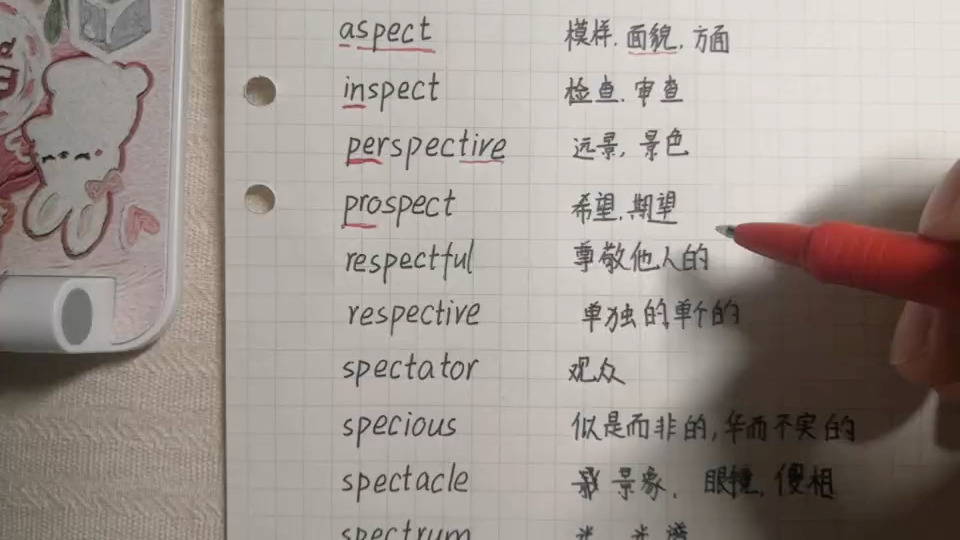 aspect 模样.面貌.方面
inspect 检查.审查
perspective 远景,景色
prospect 希望.期望
respectful 尊敬他人的
respective 单独的,单个的
spectator 观众
specious 似是而非的,华而不实的
spectacle 景象. 眼镜.傻相
spectrum 光